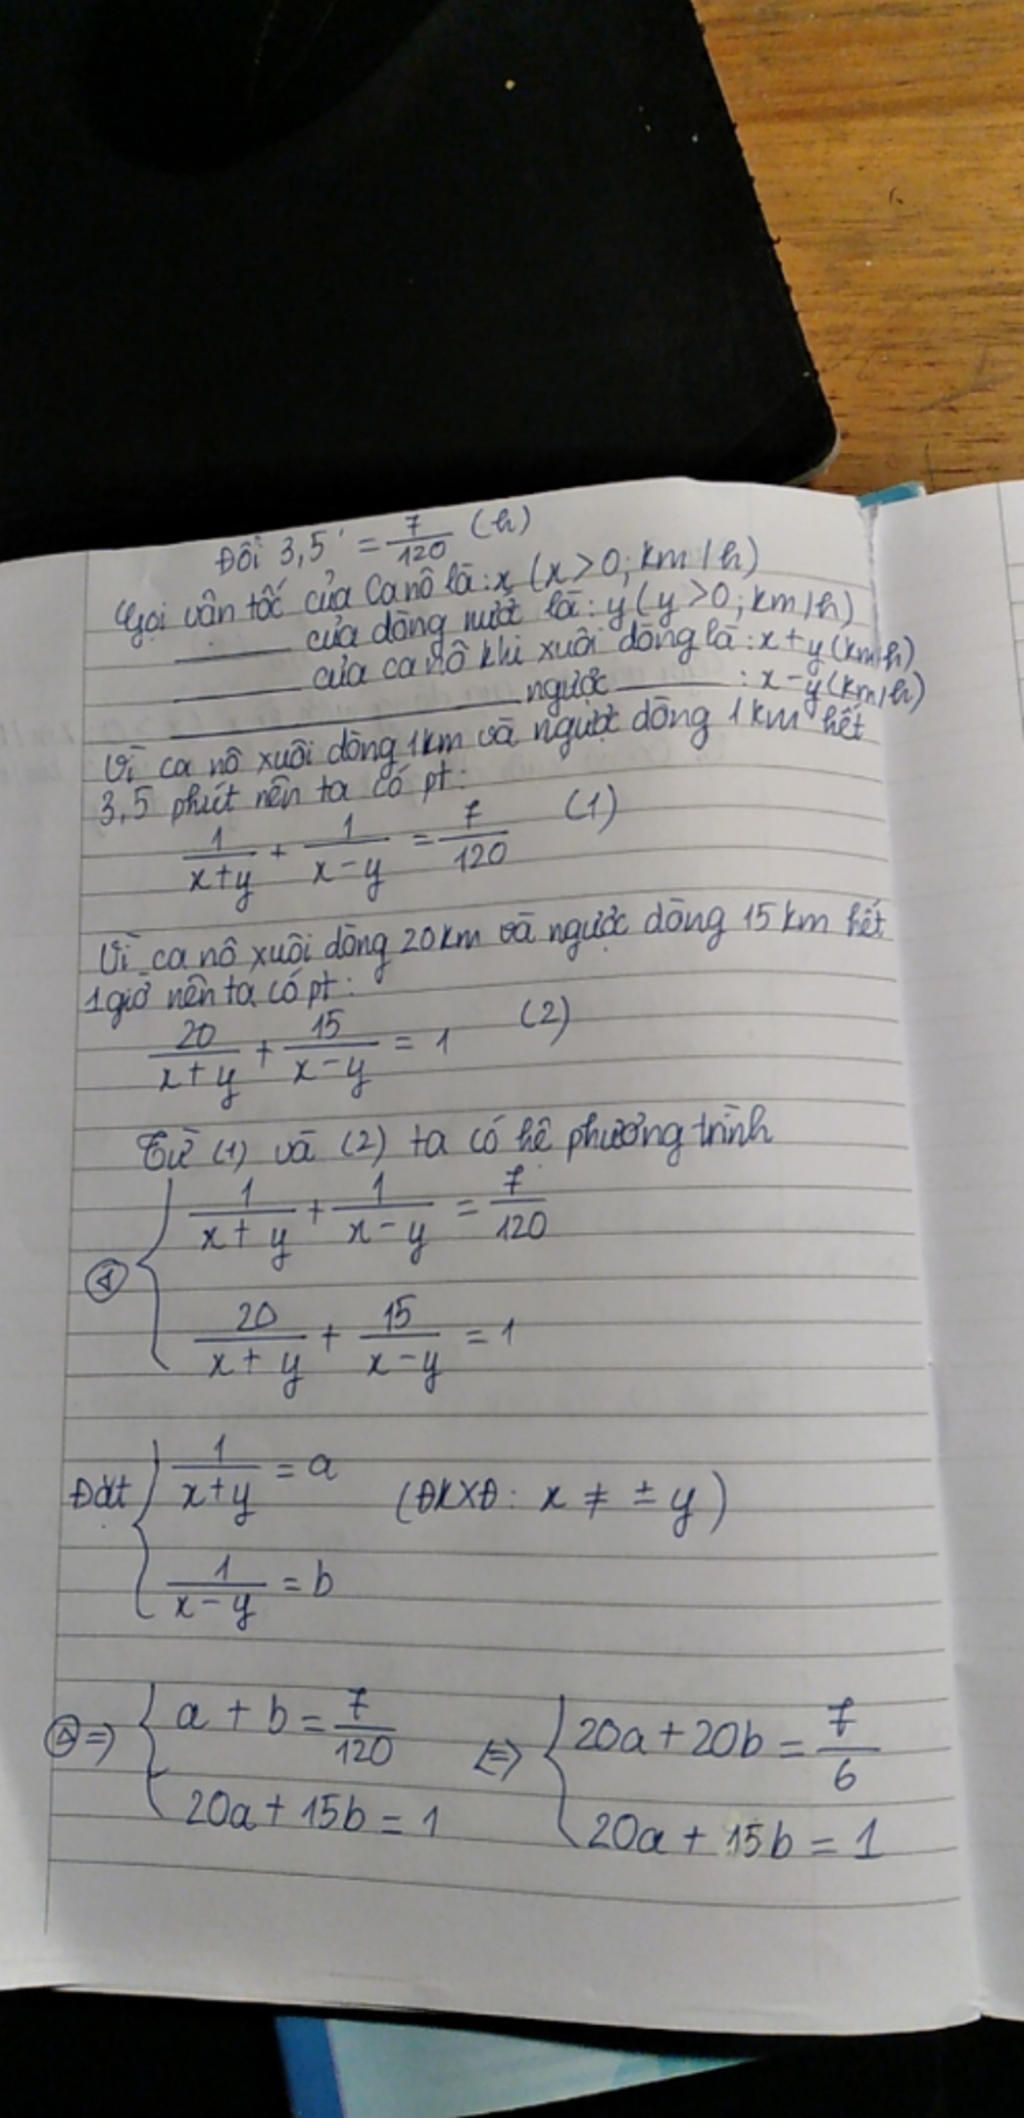 Đổi 3,5' = 7/120 (h)
Gọi vân tốc của Canô là: x (x > 0; km/h)
____ của dòng nước là: y (y > 0; km/h)
____ của canô khi xuôi dòng là: x + y (km/h)
____ ngược ____ : x - y (km/h)
Vì ca nô xuôi dòng 1km và ngược dòng 1km hết
3,5 phút nên ta có pt:
1/(x+y) + 1/(x-y) = 7/120 (1)
Vì ca nô xuôi dòng 20km và ngược dòng 15km hết
1 giờ nên ta có pt:
20/(x+y) + 15/(x-y) = 1 (2)
Từ (1) và (2) ta có hê phương trình
{ 1/(x+y) + 1/(x-y) = 7/120
20/(x+y) + 15/(x-y) = 1
Đặt { 1/(x+y) = a (ĐKXĐ: x ≠ ± y)
1/(x-y) = b
=> { a + b = 7/120 <=> { 20a + 20b = 7/6
20a + 15b = 1 20a + 15b = 1